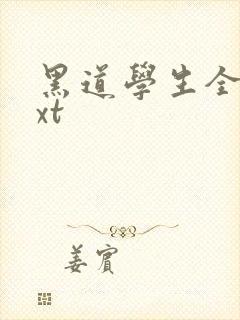 黑道學生全
xt
姜賓